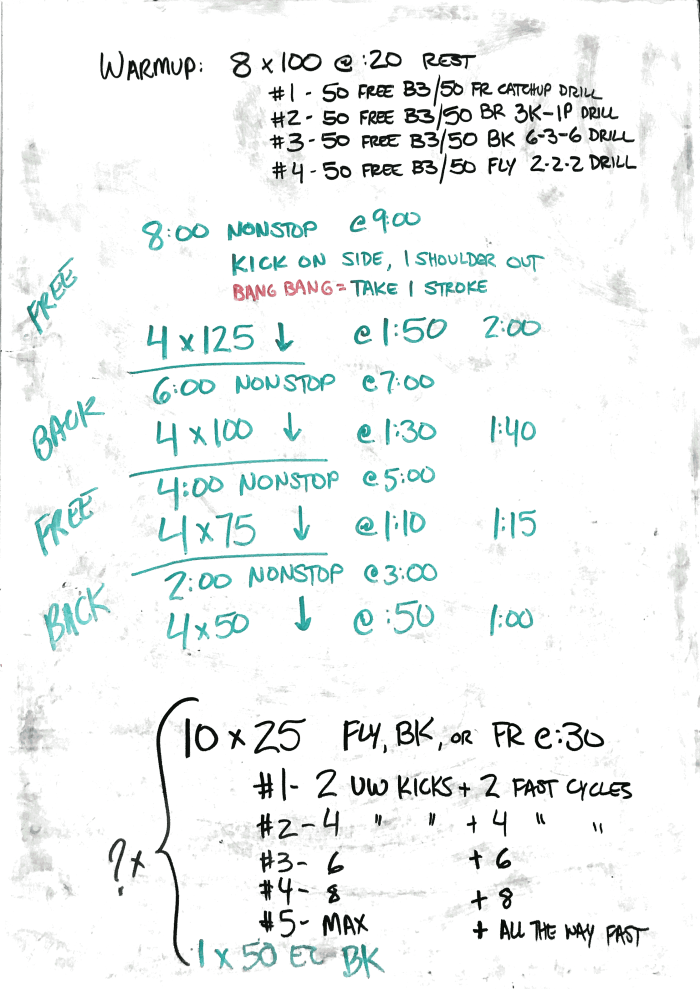 WARMUP: 8 x 100 @ :20 REST
#1 - 50 FREE B3/50 FR CATCHUP DRILL
#2 - 50 FREE B3/50 BR 3K-1P DRILL
#3 - 50 FREE B3/50 BK 6-3-6 DRILL
#4 - 50 FREE B3/50 FLY 2-2-2 DRILL
8:00 NONSTOP @ 9:00
KICK ON SIDE, 1 SHOULDER OUT
BANG BANG = TAKE 1 STROKE
FREE
4 x 125 ↓ @ 1:50 2:00
6:00 NONSTOP @ 7:00
BACK
4 x 100 ↓ @ 1:30 1:40
4:00 NONSTOP @ 5:00
FREE
4 x 75 ↓ @ 1:10 1:15
2:00 NONSTOP @ 3:00
BACK
4 x 50 ↓ @ :50 1:00
10 x 25 FLY, BK, OR FR @ :30
#1- 2 UW KICKS + 2 FAST CYCLES
#2 - 4 " " + 4 " "
?x
#3- 6 + 6
#4- 8 + 8
#5- MAX + ALL THE WAY FAST
1 x 50 EZ BK